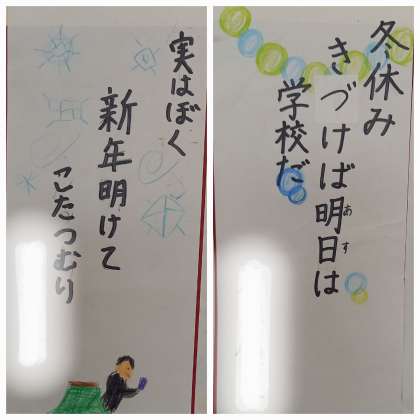 実はぼく
新年明けて
こたつむり
冬休み
きづけば明日は
あす
学校だ